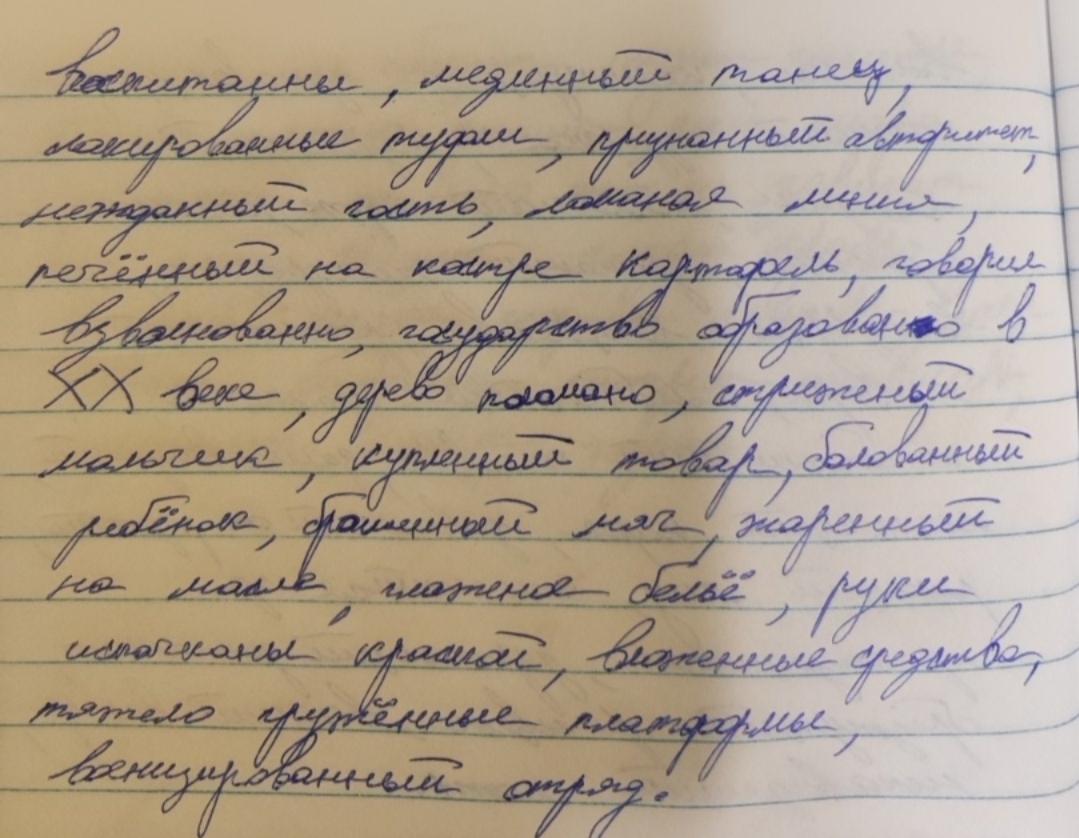 воспитанны, медленный танец,
лакированные туфли, признанный авторитет,
нежданный гость, ломаная линия,
печённый на костре картофель, говорил
взволнованно, государство образовано в
XX веке, дерево поломано, стриженый
мальчик, купленный товар, балованный
ребёнок, брошенный мяч, жаренный
на масле, глаженое бельё, руки
испачканы краской, вложенные средства,
тяжело гружённые платформы,
военизированный отряд.